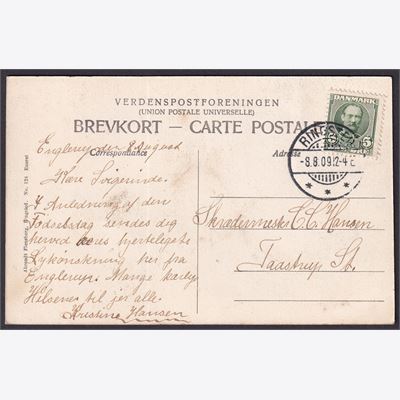 VERDENSPOSTFORENINGEN
(UNION POSTALE UNIVERSELLE)
BREVKORT — CARTE POSTALE
Correspondance
Adresse
DANMARK
5
RINGSTED
-8.8.09.12-4 E
Englerup den 8 August
Kære Svigerinde.
I Anledning af den
Fødselsdag sendes dig
herved hjerteligste
Lykønskning her fra
Englerup. Mange kærlig
Hilsener til jer alle.
Kristine Hansen
Skrædermester C.C. Hansen
Taastrup St.
Alrondt Flensborg, Ringsted. No. 124 Eneret